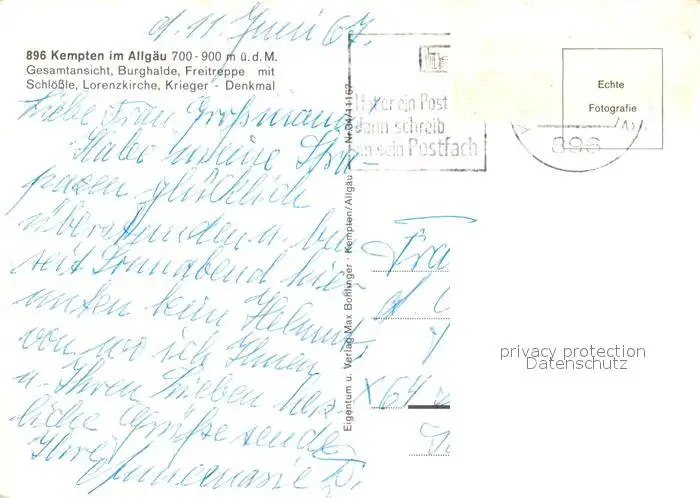 d. 11. Juni 67.
896 Kempten im Allgäu 700 - 900 m ü.d.M.
Gesamtansicht, Burghalde, Freitreppe mit
Schlößle, Lorenzkirche, Krieger - Denkmal
Liebe Frau Großmann
Habe meine Stra-
pazen glücklich
überstanden u. bin
seit Sonnabend hier
unten beim Helmut,
von wo ich Ihnen
u. Ihren Lieben herz-
liche Grüße sende
Ihre
Annemarie
Eigentum u. Verlag Max Bohlinger · Kempten/Allgäu
Nr. 34/1167
ein Post
dann schreib
an sein Postfach
896
Echte
Fotografie
Fra
privacy protection
Datenschutz